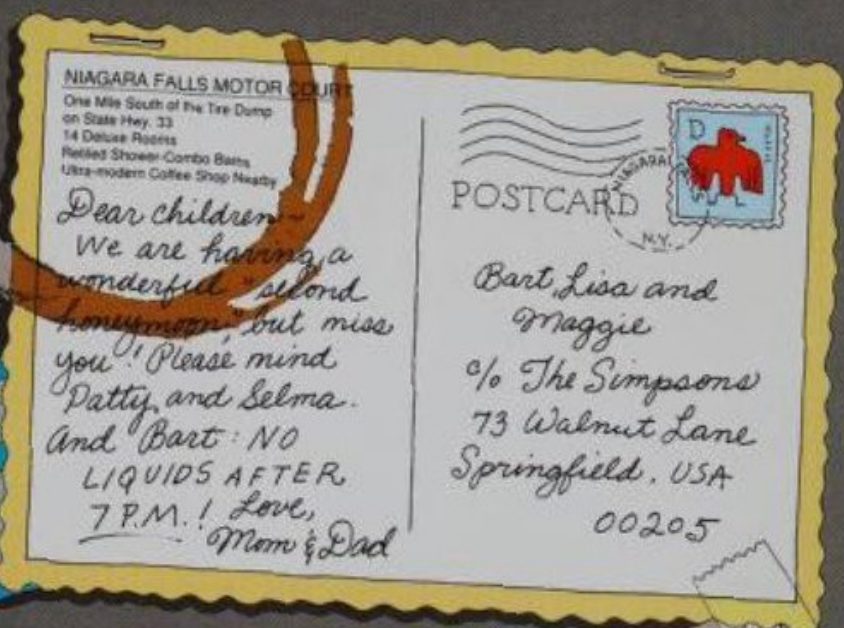 NIAGARA FALLS MOTOR COURT
One Mile South of the Tire Dump
on State Hwy. 33
14 Deluxe Rooms
Retiled Shower-Combo Baths
Ultra-modern Coffee Shop Nearby
Dear children~
We are having a
wonderful "second
honeymoon," but miss
you! Please mind
Patty and Selma.
And Bart: NO
LIQUIDS AFTER
7 P.M.! Love,
Mom & Dad
D
NIAGARA
N.Y.
POSTCARD
Bart, Lisa and
Maggie
c/o The Simpsons
73 Walnut Lane
Springfield, USA
00205